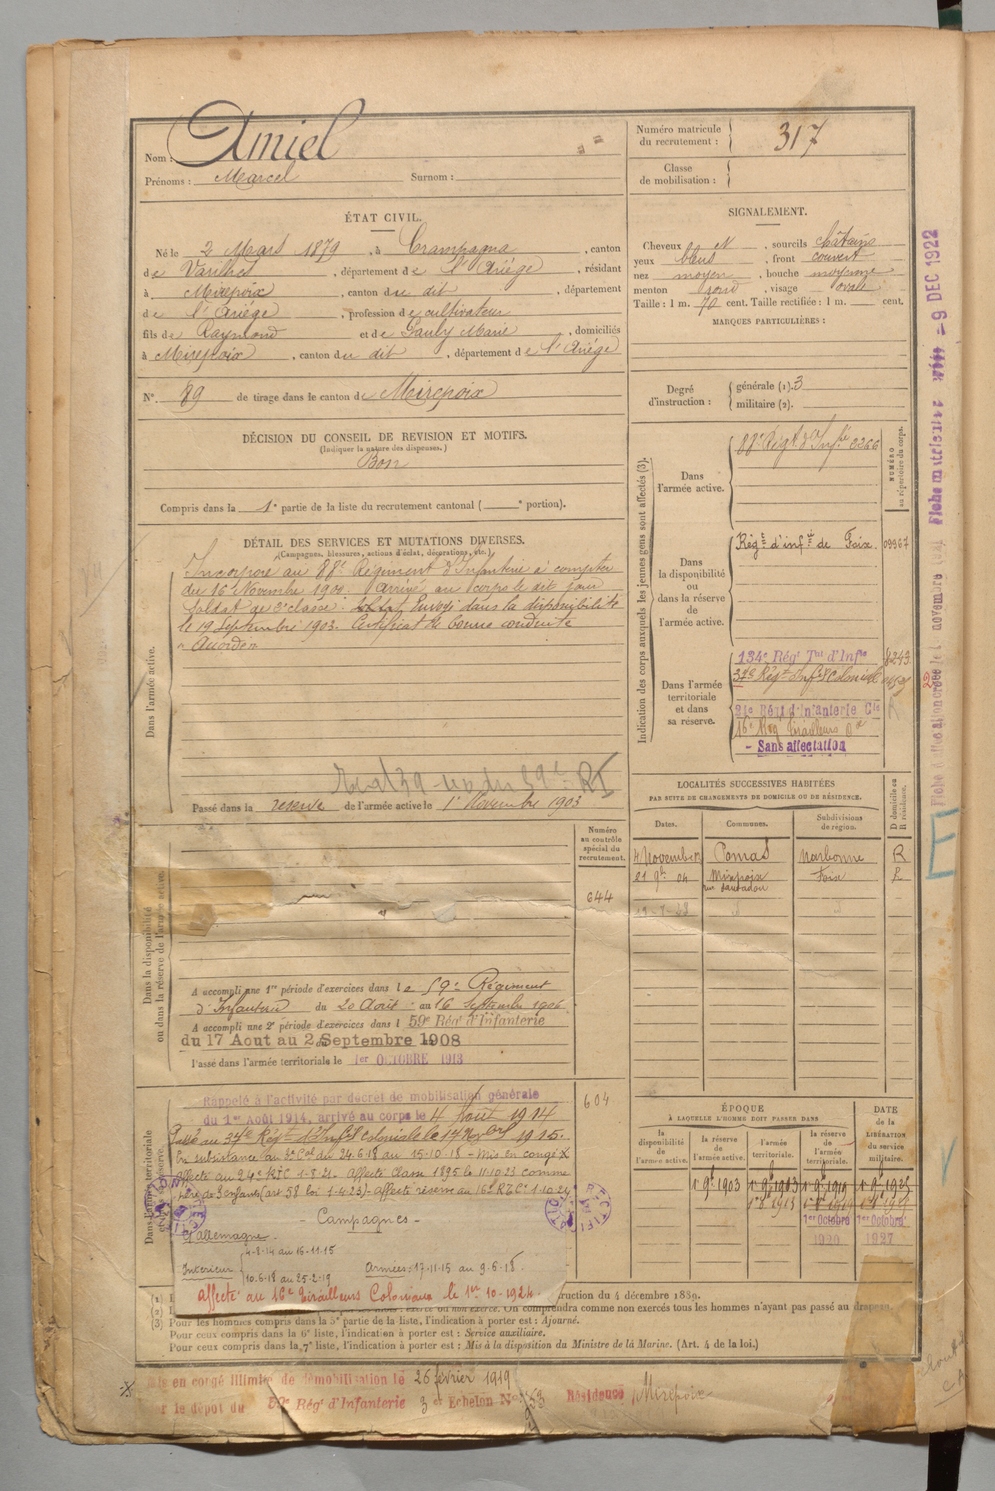 Nom : Amiel
Prénoms : Marcel Surnom :
Numéro matricule du recrutement : 317
Classe de mobilisation :
ÉTAT CIVIL.
Né le 2 Mars 1879, à Crampagna, canton
de Varilhes, département de l'Ariége, résidant
à Mirepoix, canton du dit, département
de l'Ariége, profession de cultivateur
fils de Raymond et de Pauly Marie, domiciliés
à Mirepoix, canton du dit, département de l'Ariége
N° 89 de tirage dans le canton de Mirepoix
SIGNALEMENT.
Cheveux N, sourcils châtains
yeux bleus, front couvert
nez moyen, bouche moyenne
menton rond, visage ovale
Taille : 1 m. 70 cent. Taille rectifiée : 1 m. cent.
MARQUES PARTICULIÈRES :
Degré d'instruction : générale (1). 3
militaire (2).
DÉCISION DU CONSEIL DE REVISION ET MOTIFS.
(Indiquer la nature des dispenses.)
Bon
Compris dans la 1e partie de la liste du recrutement cantonal ( e portion).
DÉTAIL DES SERVICES ET MUTATIONS DIVERSES.
(Campagnes, blessures, actions d'éclat, décorations, etc.)
Dans l'armée active.
Incorporé au 88e Régiment d'Infanterie à compter
du 16 Novembre 1900. Arrivé au corps le dit jour
Soldat de 2e classe. Envoyé dans la disponibilité
le 19 Septembre 1903. Certificat de bonne conduite
Accordé
Passé dans la reserve de l'armée active le 1er Novembre 1903
Indication des corps auxquels les jeunes gens sont affectés (3).
NUMÉRO au répertoire du corps.
Dans l'armée active.
88e Régt d'Infie 2266
Dans la disponibilité ou dans la réserve de l'armée active.
Régt d'infie de Foix. 09967
Dans l'armée territoriale et dans sa réserve.
134e Régt Tal d'Infie 8243
37e Régt d'Inf. Coloniale
24e Régt d'Infanterie Cle
16e Reg Tirailleurs
- Sans affectation
LOCALITÉS SUCCESSIVES HABITÉES
PAR SUITE DE CHANGEMENTS DE DOMICILE OU DE RÉSIDENCE.
Dates. Communes. Subdivisions de région. D domicile ou R résidence.
Pomas Narbonne R
21 9bre 04 Mirepoix Foix
Dans la disponibilité ou dans la réserve de l'armée active.
Numéro au contrôle spécial du recrutement.
644
A accompli une 1re période d'exercices dans le 59e Régiment
d'Infanterie du 20 Août au 16 Septembre 1906
A accompli une 2e période d'exercices dans l 59e Régt d'Infanterie
du 17 Aout au 2 Septembre 1908
Passé dans l'armée territoriale le 1er OCTOBRE 1913
604
Rappelé à l'activité par décret de mobilisation générale
du 1er Août 1914, arrivé au corps le 4 Aout 1914
Passé au 37e Régt d'Inf. Coloniale le 17 1915.
En subsistance au 3e Col du 24.6.18 au 15-10-18 - Mis en congé X
Affecté au 24e RIC 1-8-21. Affecté Classe 1895 le 11.10.23 comme
père de 3 enfants (art 58 loi 1-4-23) - affecté réserve au 16e R.T.Cx 1.10.24
- Campagnes -
C/ Allemagne.
Intérieur 4-8-14 au 16-11-15
10.6.18 au 25-2-19
Armées : 17-11-15 au 9-6-18.
Affecté au 16e Tirailleurs Coloniaux le 1er 10-1924.
ÉPOQUE
À LAQUELLE L'HOMME DOIT PASSER DANS
la disponibilité de l'armée active. la réserve de l'armée active. l'armée territoriale. la réserve de l'armée territoriale.
DATE de la LIBÉRATION du service militaire.
1er 9bre 1903 1er 9bre 1913 1er 9bre 1919 1er 9bre 1925
1er Octobre 1er Octobre
1920 1927
ruction du 4 décembre 1889.
On comprendra comme non exercés tous les hommes n'ayant pas passé au drapeau.
(3) Pour les hommes compris dans la 5e partie de la liste, l'indication à porter est : Ajourné.
Pour ceux compris dans la 6e liste, l'indication à porter est : Service auxiliaire.
Pour ceux compris dans la 7e liste, l'indication à porter est : Mis à la disposition du Ministre de la Marine. (Art. 4 de la loi.)
Mis en congé illimité de démobilisation le 26 février 1919
le dépôt du 59e Régt d'Infanterie 3e Echelon No 53 Résidence Mirepoix
9 DEC 1922